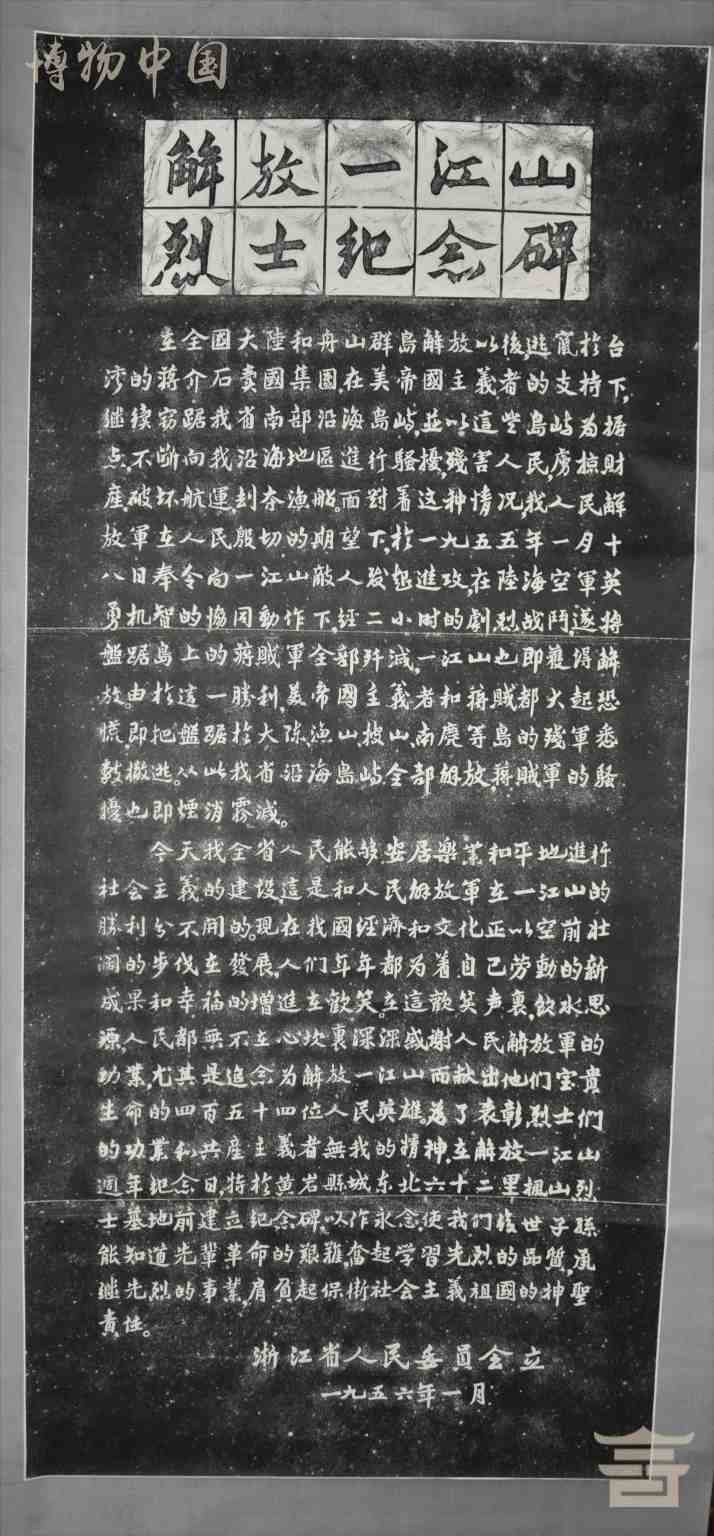 博物中国
解放一江山
烈士纪念碑
在全國大陸和舟山群島解放以後,逃竄於台
湾的蒋介石卖國集團,在美帝國主義者的支持下,
继续窃踞我省南部沿海島屿,並以這些島屿为据
点,不断向我沿海地區進行騷擾,殘害人民,虏掠财
産,破坏航運,刦夺漁船。面對着这种情况,我人民解
放軍在人民殷切的期望下,於一九五五年一月十
八日奉令向一江山敵人發起進攻,在陸海空軍英
勇机智的協同動作下,經二小时的劇烈战鬥,遂将
盤踞島上的蒋賊軍全部歼滅,一江山也即獲得解
放。由於這一勝利,美帝國主義者和蒋賊都大起恐
慌,即把盤踞於大陈、漁山、披山、南麂等島的殘軍悉
数撤逃。从此我省沿海島屿全部解放,蒋賊軍的騷
擾也即煙消雾滅。
今天我全省人民能够安居樂業和平地進行
社会主義的建設,這是和人民解放軍在一江山的
勝利分不開的。現在我國經濟和文化正以空前壮
濶的步伐在發展,人们年年都为着自己劳動的新
成果和幸福的增進在歡笑。在這歡笑声裏,飲水思
源,人民都無不在心坎裏深深感謝人民解放軍的
功業,尤其是追念为解放一江山而献出他们宝贵
生命的四百五十四位人民英雄。为了表彰烈士们
的功業和共産主義者無我的精神,在解放一江山
週年纪念日,特於黄岩縣城东北六十二里楓山烈
士墓地前建立纪念碑,以作永念,使我们後世子孫
能知道先輩革命的艰難,奮起学習先烈的品質,承
继先烈的事業,肩負起保衛社会主義祖國的神聖
責任。
浙江省人民委員会立
一九五六年一月